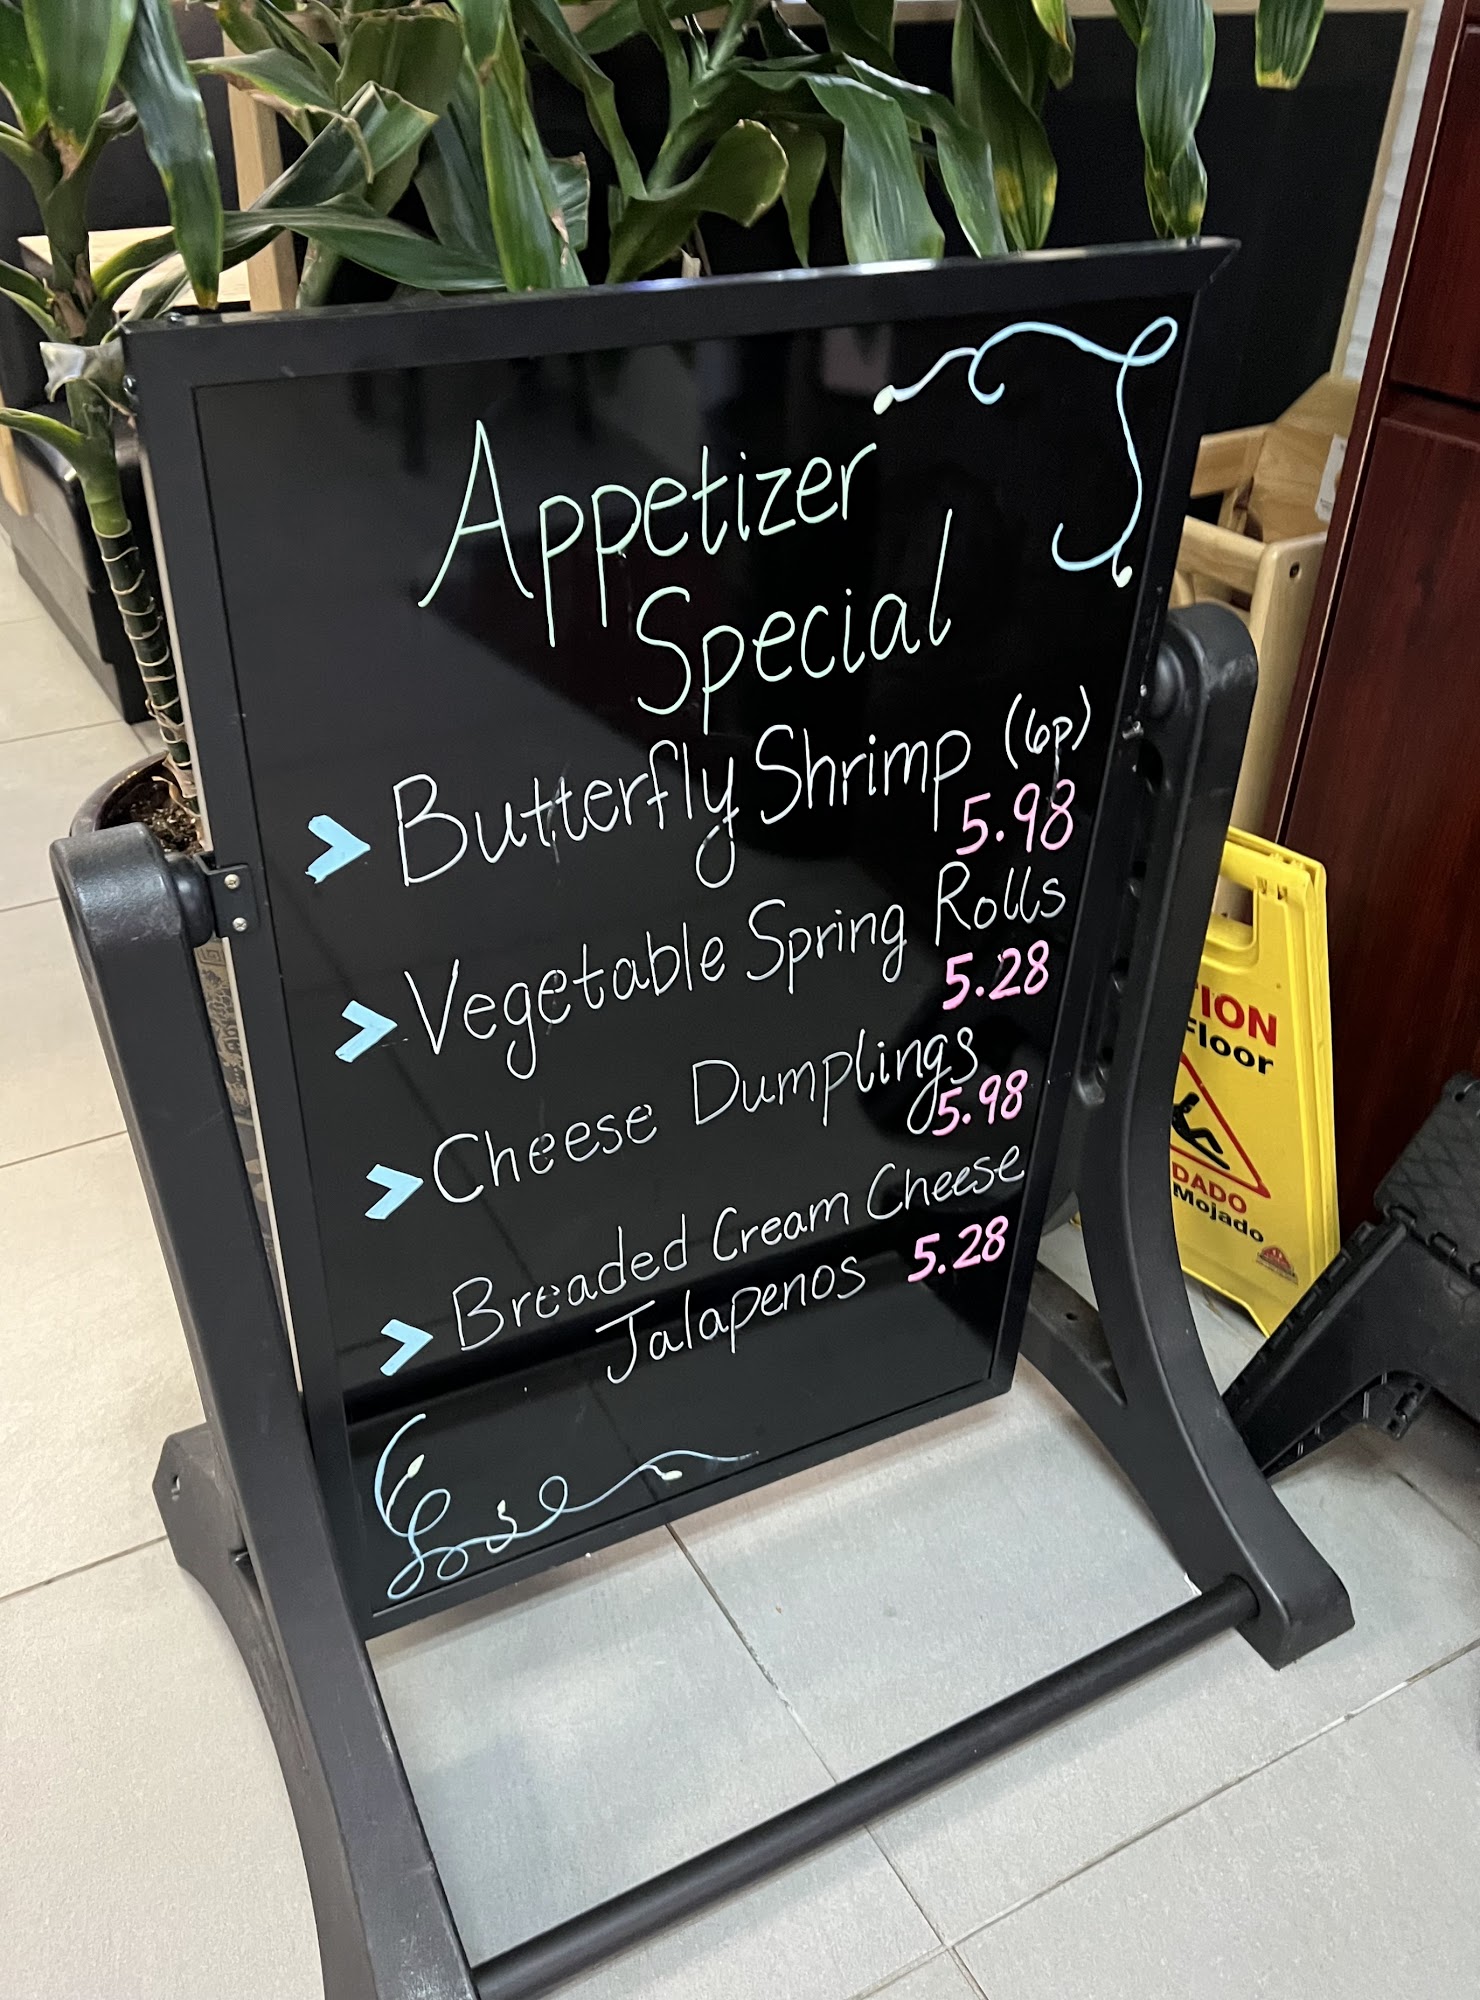 Appetizer
Special
> Butterfly Shrimp (6p)
5.98
> Vegetable Spring Rolls
5.28
> Cheese Dumplings
5.98
> Breaded Cream Cheese
Jalapenos 5.28
TION
Floor
DADO
Mojado